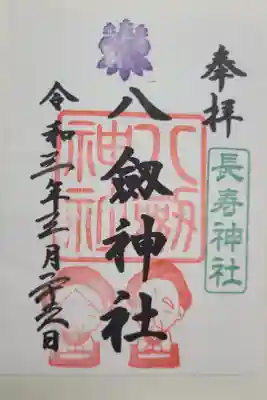 奉拝
長寿神社
八劔神社
八劔
神社
令和三年三月日